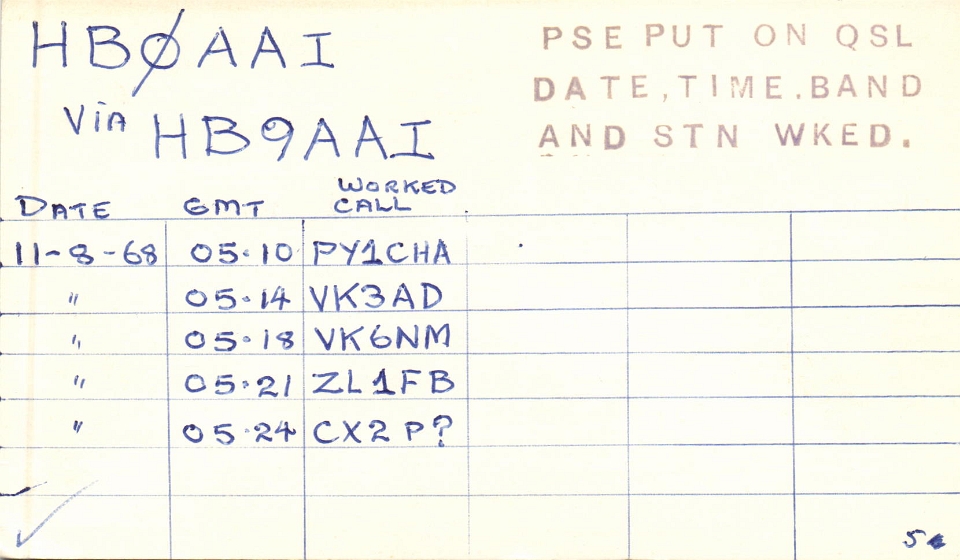 HBØAAI
Via HB9AAI
PSE PUT ON QSL
DATE,TIME.BAND
AND STN WKED.
DATE GMT WORKED CALL
11-8-68 05·10 PY1CHA
" 05·14 VK3AD
" 05·18 VK6NM
" 05·21 ZL1FB
" 05·24 CX2P?